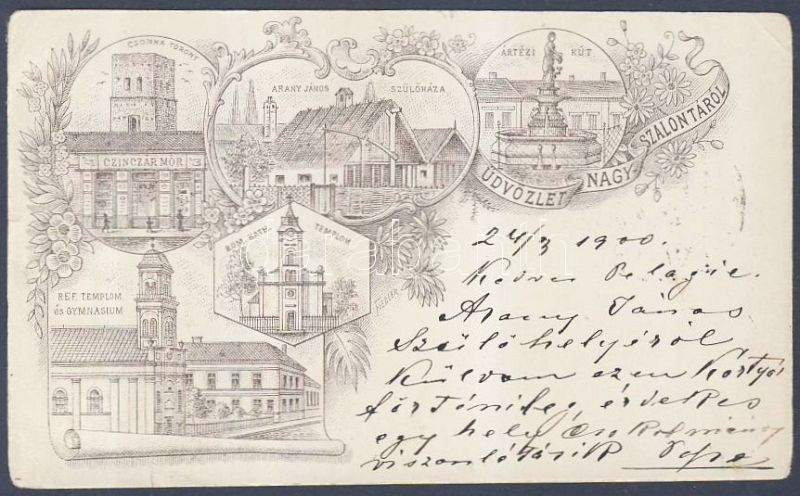 CSONKA TORONY
CZINCZAR MÓR
ARANY JÁNOS SZÜLŐHÁZA
ÁRTÉZI KÚT
ÜDVÖZLET NAGY-SZALONTÁRÓL
RÓM. KATH. TEMPLOM
REF. TEMPLOM
és GYMNASIUM
darabanth
24/3 1900.
Kedves Pelagie.
Arany János
Szülőhelyéről
Küldöm ezen Kártyát
egy hely
viszontlátásik